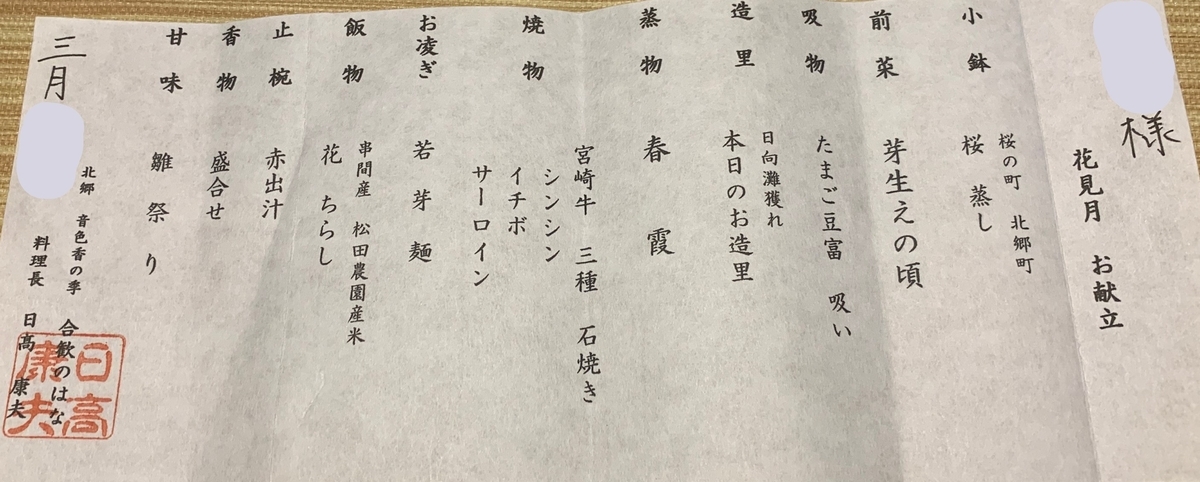 様
花見月 お献立
小鉢
桜の町 北郷町
桜蒸し
前菜
芽生えの頃
吸物
たまご豆富 吸い
造里
日向灘獲れ
本日のお造里
蒸物
春霞
焼物
宮崎牛 三種 石焼き
シンシン
イチボ
サーロイン
お凌ぎ
若芽麺
飯物
串間産 松田農園産米
花ちらし
止椀
赤出汁
香物
盛合せ
甘味
雛祭り
三月
北郷 音色香の季 合歓のはな
料理長 日髙 康夫
日高
康夫